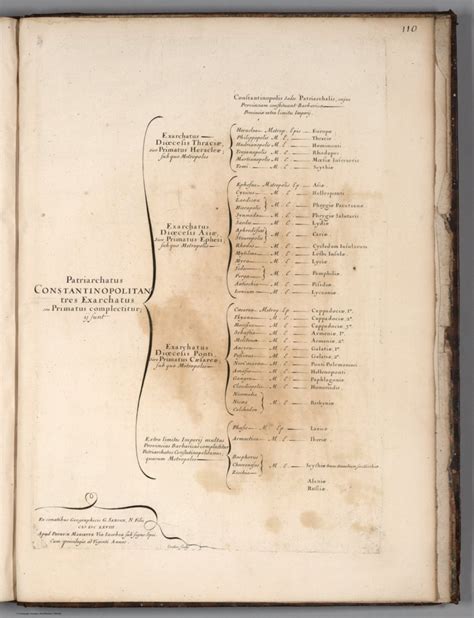 110
Constantinopolis Sedes Patriarchalis, cujus
Provinciam constituunt Barbaricæ
Provinciæ extra limites Imperij.
Exarchatus
Diœcesis Thraciæ,
sive Primatus Heracleæ,
sub quo Metropoles
Heraclea Metrop. Epis Europæ
Philippopolis M. E. Thraciæ
Hadrianopolis M. E. Hæmimonti
Trajanopolis M. E. Rhodopes
Martianopolis M. E. Mœsiæ Inferioris
Tomi M. E. Scythiæ
Exarchatus
Diœcesis Asiæ,
sive Primatus Ephesi,
sub quo Metropoles
Ephesus Metropolis Ep. Asiæ
Cyzicus M. E. Hellesponti
Laodicea
Hierapolis M. E. Phrygiæ Pacatianæ
Synnada M. E. Phrygiæ Salutaris
Sardes M. E. Lydiæ
Aphrodisias
Stauropolis M. E. Cariæ
Rhodus M. E. Cycladum Insularum
Mytilene M. E. Lesbi Insulæ
Myra M. E. Lyciæ
Side
Perga M. E. Pamphiliæ
Antiochia M. E. Pisidiæ
Iconium M. E. Lycaoniæ
Patriarchatus
CONSTANTINOPOLITAN
tres Exarchatus
seu Primatus complectitur;
ij sunt
Exarchatus
Diœcesis Ponti,
sive Primatus Cæsareæ
sub quo Metropoles
Cæsarea Metrop. Ep. Cappadociæ 1ᵃ.
Thyana M. E. Cappadociæ 2ᵃ.
Mocissus M. E. Cappadociæ 3ᵃ.
Sebastia M. E. Armeniæ 1ᵃ.
Melitene M. E. Armeniæ 2ᵃ.
Ancyra M. E. Galatiæ 1ᵃ.
Pessinus M. E. Galatiæ 2ᵃ.
Neocæsarea M. E. Ponti Polemoniaci
Amasia M. E. Hellenoponti
Gangra M. E. Paphlagoniæ
Claudiopolis M. E. Honoriadis
Nicomedia
Nicæa M. E. Bithyniæ
Calchedon
Extra limites Imperij multas
Provincias Barbaricas complectitur
Patriarchatus Constantinopolitanus,
quarum Metropoles
Phasis M. Ep. Lazicæ
M. E.
Bosphorus
Chersonesus M. E.
Alaniæ
Russiæ
Ex conatibus Geographicis G. SANSON, N. Filii
Apud Petrum Mariette Via Iacobæa sub signo Spei
Cum privilegio ad Viginti Annos